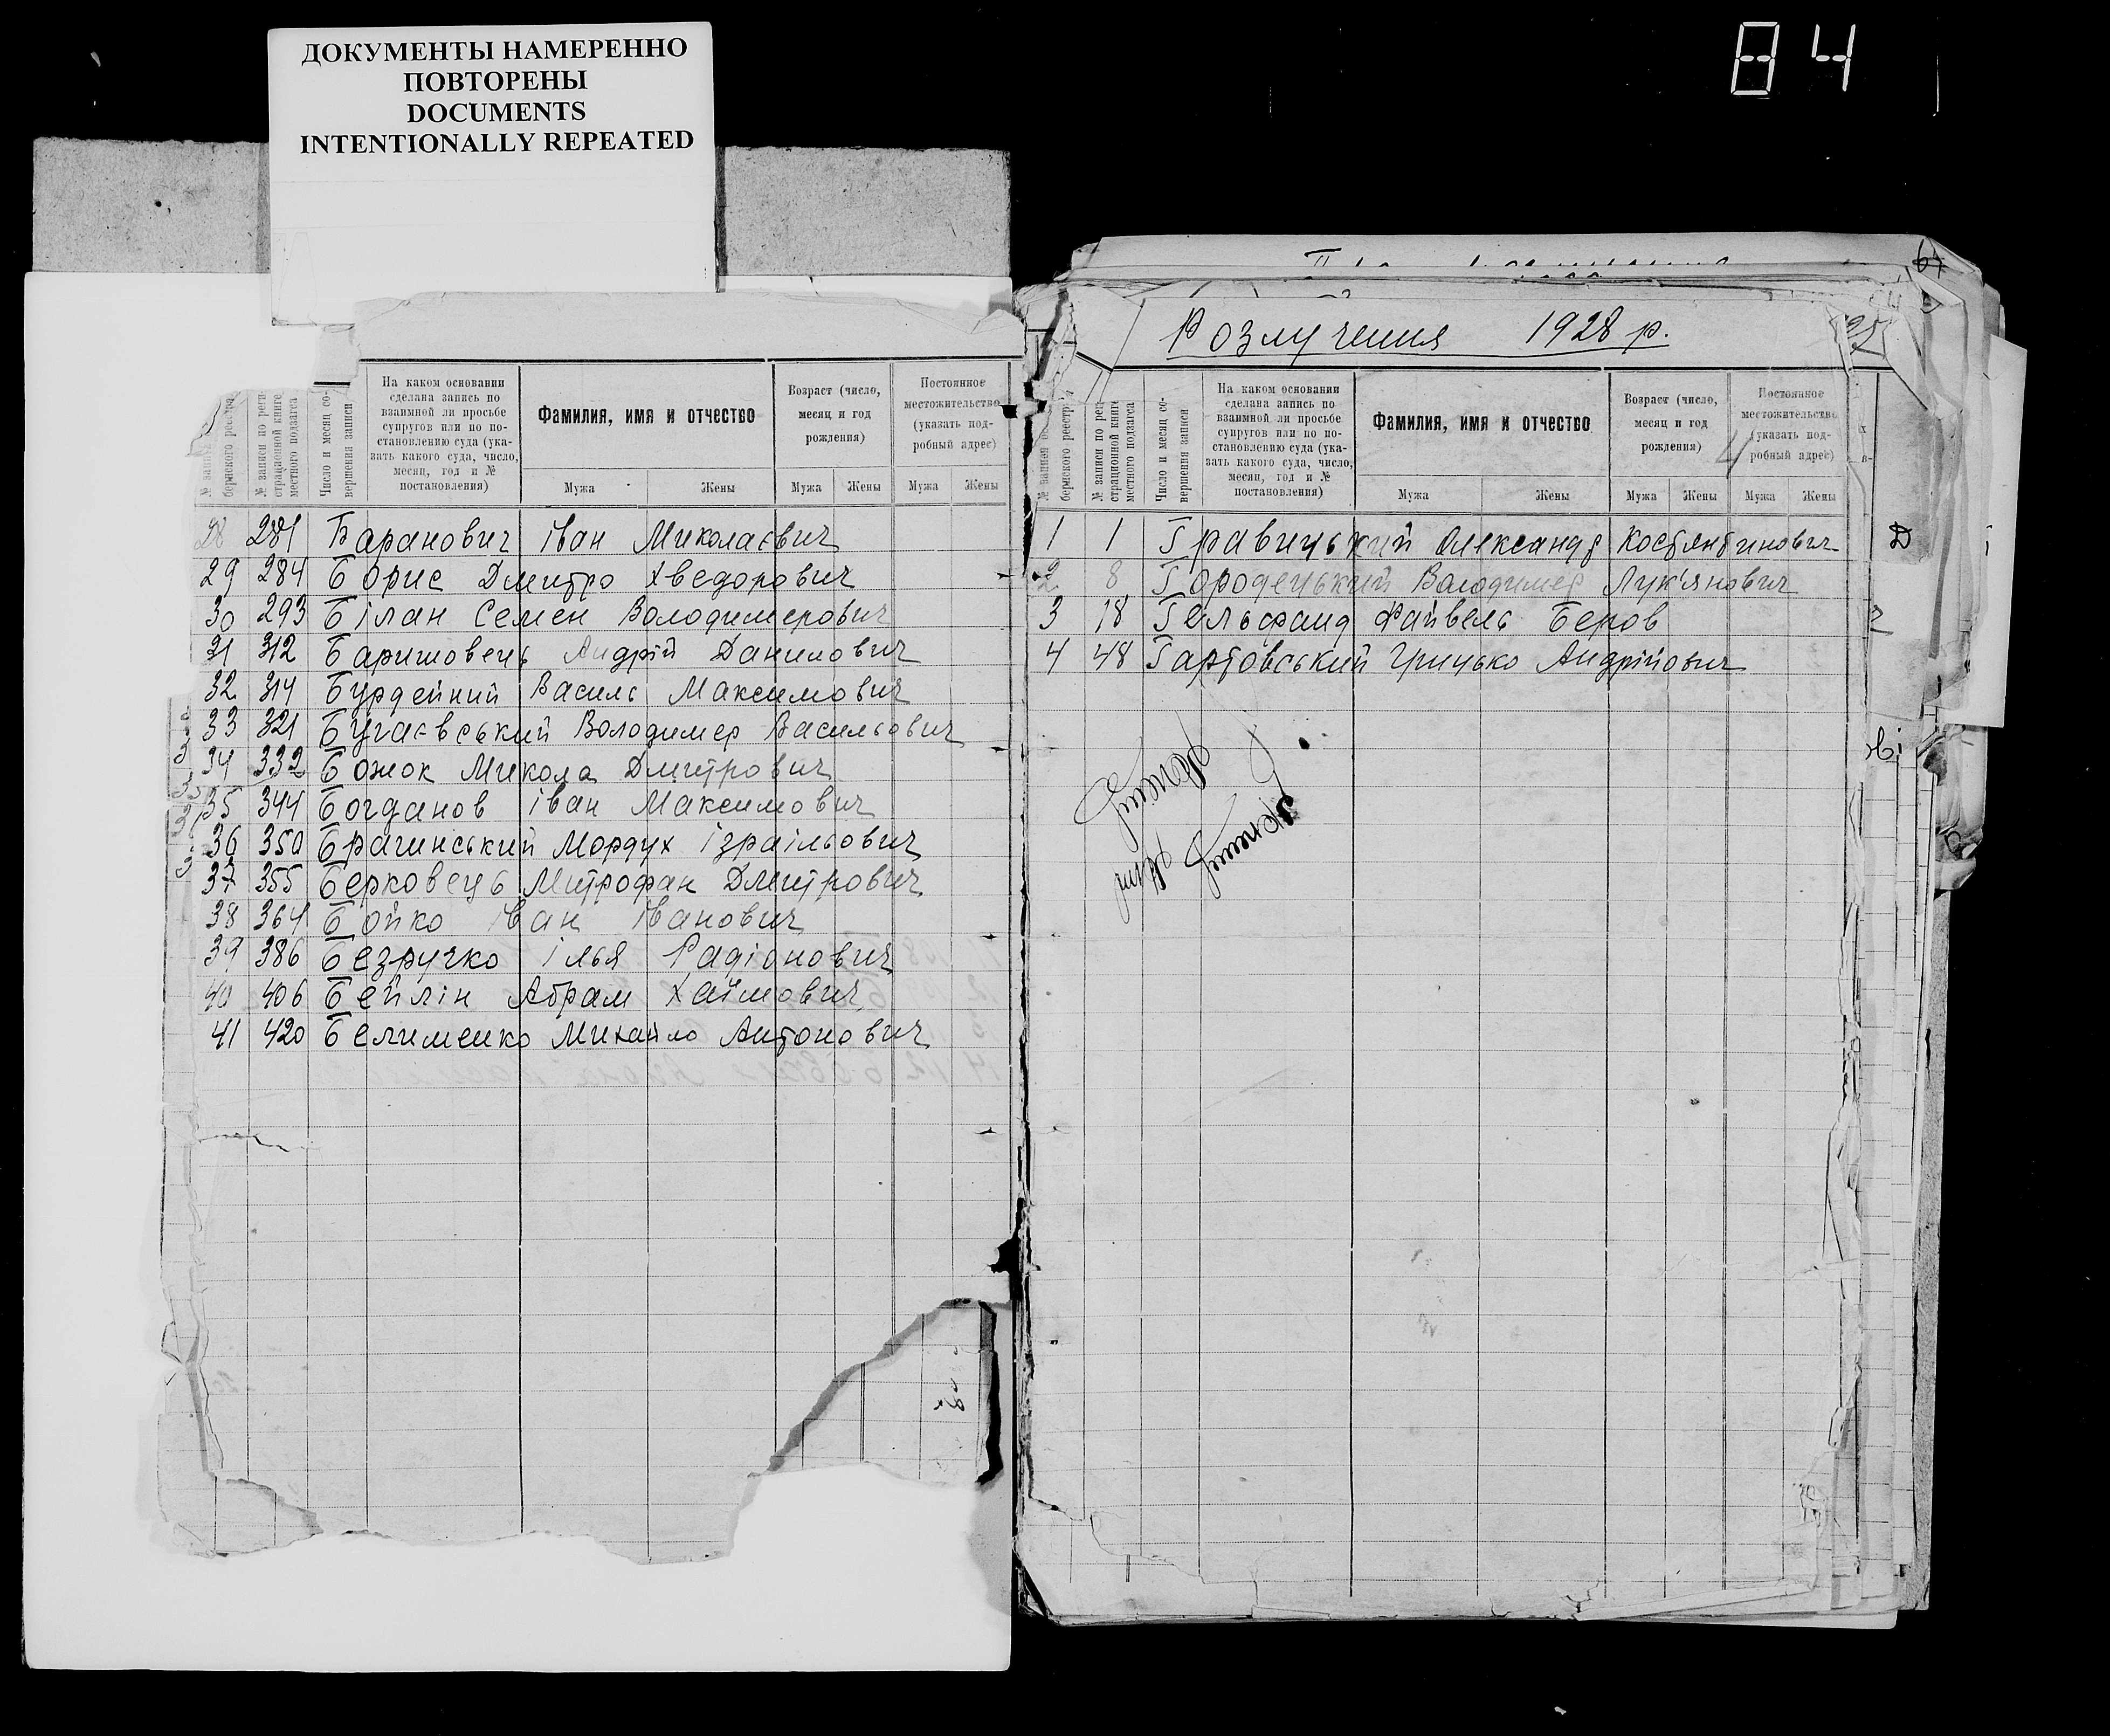 ДОКУМЕНТЫ НАМЕРЕННО
ПОВТОРЕНЫ
DOCUMENTS
INTENTIONALLY REPEATED
84
На каком основании
сделана запись по
взаимной ли просьбе
супругов или по по-
становлению суда (ука-
зать какого суда, число,
месяц, год и №
постановления)
Фамилия, имя и отчество
Возраст (число,
месяц и год
рождения)
Постоянное
местожительство
(указать под-
робный адрес)
№ записи по реги-
страционной книге
местного подзагса
Число и месяц со-
вершения записи
Мужа Жены Мужа Жены Мужа Жены
28 281 Баранович іван Миколаєвич
29 284 Борис Дмитро Хведорович
30 293 Білан Семен Володимерович
31 312 Баришовець Андрій Данилович
32 314 Бурдейний Василь Максимович
33 321 Бугаєвський Володимер Васильович
34 332 Божок Микола Дмитрович
35 344 Богданов іван Максимович
36 350 Брагинський Мордух ізраільович
37 355 Берковець Митрофан Дмитрович
38 364 Бойко іван іванович
39 386 Безручко ілья Радіонович
40 406 Бейлін Абрам Хаїмович
41 420 Белименко Михайло Антонович
Розлучення 1928 р.
№ записи по реги-
страционной книге
местного подзагса
Число и месяц со-
вершения записи
На каком основании
сделана запись по
взаимной ли просьбе
супругов или по по-
становлению суда (ука-
зать какого суда, число,
месяц, год и №
постановления)
Фамилия, имя и отчество
Возраст (число,
месяц и год
рождения)
Постоянное
местожительство
(указать под-
робный адрес)
Мужа Жены Мужа Жены Мужа Жены
1 1 Гравицький Олександр Костянтинович
2 8 Городецький Володимер Лук'янович
3 18 Гельфанд Файвель Беров
4 48 Гартовський Грицько Андрійович